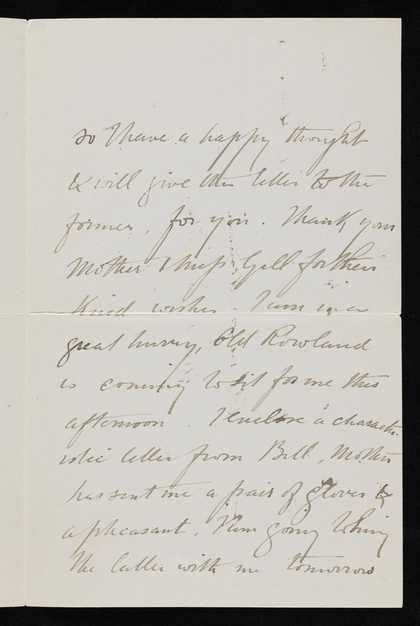 so I have a happy thought
& will give this letter to the
former, for you. Thank your
Mother & Miss Gell for their
Kind wishes. I am in a
great hurry, Old Rowland
is coming to sit for me this
afternoon. I enclose a character-
istic letter from Bell, Mother
has sent me a pair of gloves &
a pheasant. I am going to bring
the latter with me tomorrow